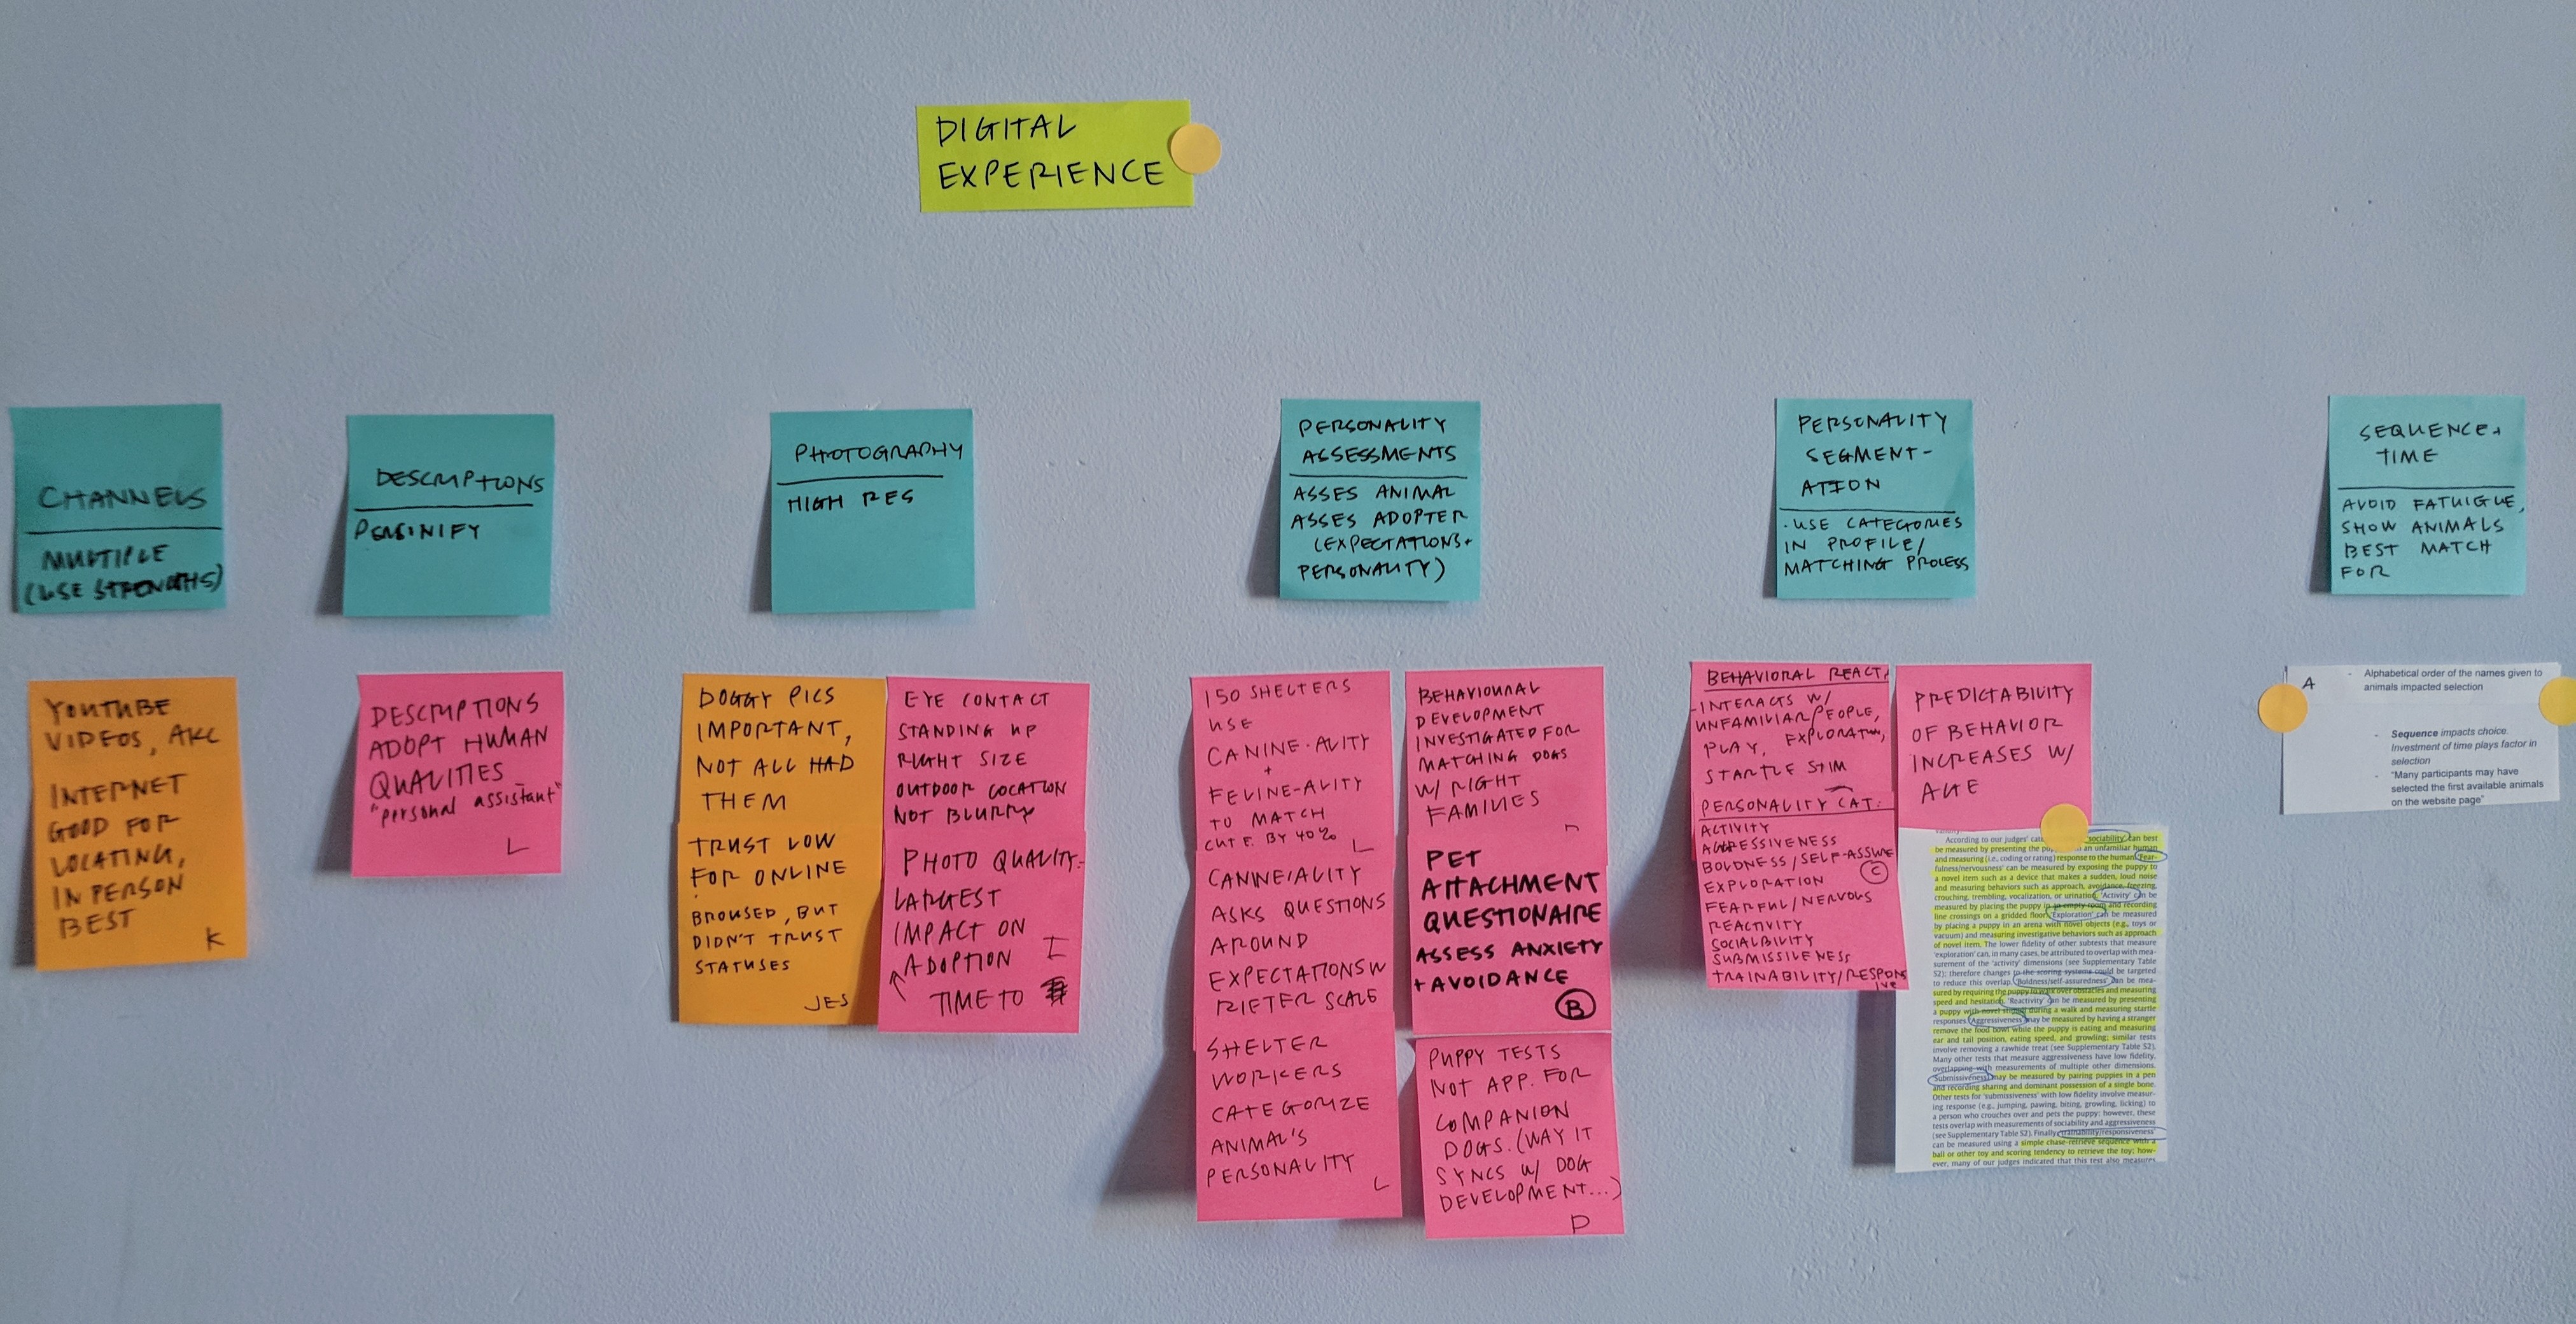 DIGITAL
EXPERIENCE
CHANNELS
MULTIPLE
(USE STRENGTHS)
YOUTUBE
VIDEOS, AKC
INTERNET
GOOD FOR
LOCATING,
IN PERSON
BEST
K
DESCRIPTIONS
PERSINIFY
DESCRIPTIONS
ADOPT HUMAN
QUALITIES
"personal assistant"
L
PHOTOGRAPHY
HIGH RES
DOGGY PICS
IMPORTANT,
NOT ALL HAD
THEM
TRUST LOW
FOR ONLINE
BROWSED, BUT
DIDN'T TRUST
STATUSES
JES
EYE CONTACT
STANDING UP
RIGHT SIZE
OUTDOOR LOCATION
NOT BLURRY
PHOTO QUALITY:
LARGEST
IMPACT ON
ADOPTION I
TIME TO
PERSONALITY
ASSESSMENTS
ASSES ANIMAL
ASSES ADOPTER
(EXPECTATIONS+
PERSONALITY)
150 SHELTERS
USE
CANINE-ALITY
+
FELINE-ALITY
TO MATCH
BY 40%
L
CANINE/ALITY
ASKS QUESTIONS
AROUND
EXPECTATIONS W
SCALE
SHELTER
WORKERS
CATEGORIZE
ANIMAL'S
PERSONALITY
L
BEHAVIOURAL
DEVELOPMENT
INVESTIGATED FOR
MATCHING DOGS
W/ RIGHT
FAMILIES
PET
ATTACHMENT
QUESTIONAIRE
ASSESS ANXIETY
+ AVOIDANCE
B
PUPPY TESTS
NOT APP. FOR
COMPANION
DOGS. (WAY IT
SYNCS W/ DOG
DEVELOPMENT...)
D
PERSONALITY
SEGMENT-
ATION
- USE CATEGORIES
IN PROFILE/
MATCHING PROCESS
BEHAVIORAL REACT.
- INTERACTS W/
UNFAMILIAR PEOPLE,
PLAY, EXPLORATN,
STARTLE STIM
PERSONALITY CAT:
ACTIVITY
AGGRESSIVENESS
BOLDNESS/SELF-ASSURE
EXPLORATION C
FEARFUL/NERVOUS
REACTIVITY
SOCIALBILITY
SUBMISSIVENESS
TRAINABILITY/RESPONS
IVE
PREDICTABILITY
OF BEHAVIOR
INCREASES W/
AGE
According to our judges' cate 'sociability' can best
be measured by presenting the pup an unfamiliar human
and measuring (i.e., coding or rating) response to the human. 'Fear-
fulness/nervousness' can be measured by exposing the puppy to
a novel item such as a device that makes a sudden, loud noise
and measuring behaviors such as approach, avoidance, freezing,
crouching, trembling, vocalization, or urination. 'Activity' can be
measured by placing the puppy in an empty room and recording
line crossings on a gridded floor. 'Exploration' can be measured
by placing a puppy in an arena with novel objects (e.g., toys or
vacuum) and measuring investigative behaviors such as approach
of novel item. The lower fidelity of other subtests that measure
'exploration' can, in many cases, be attributed to overlap with mea-
surement of the 'activity' dimensions (see Supplementary Table
S2); therefore changes to the scoring systems could be targeted
to reduce this overlap. 'Boldness/self-assuredness' can be mea-
sured by requiring the puppy to walk over obstacles and measuring
speed and hesitation. 'Reactivity' can be measured by presenting
a puppy with novel stimuli during a walk and measuring startle
responses. 'Aggressiveness' may be measured by having a stranger
remove the food bowl while the puppy is eating and measuring
ear and tail position, eating speed, and growling; similar tests
involve removing a rawhide treat (see Supplementary Table S2).
Many other tests that measure aggressiveness have low fidelity,
overlapping with measurements of multiple other dimensions.
'Submissiveness' may be measured by pairing puppies in a pen
and recording sharing and dominant possession of a single bone.
Other tests for 'submissiveness' with low fidelity involve measur-
ing response (e.g., jumping, pawing, biting, growling, licking) to
a person who crouches over and pets the puppy; however, these
tests overlap with measurements of sociability and aggressiveness
(see Supplementary Table S2). Finally, 'trainability/responsiveness'
can be measured using a simple chase-retrieve sequence with a
ball or other toy and scoring tendency to retrieve the toy; how-
ever, many of our judges indicated that this test also measures
SEQUENCE+
TIME
AVOID FATUIGUE,
SHOW ANIMALS
BEST MATCH
FOR
A
- Alphabetical order of the names given to
animals impacted selection
- Sequence impacts choice.
Investment of time plays factor in
selection
- "Many participants may have
selected the first available animals
on the website page"